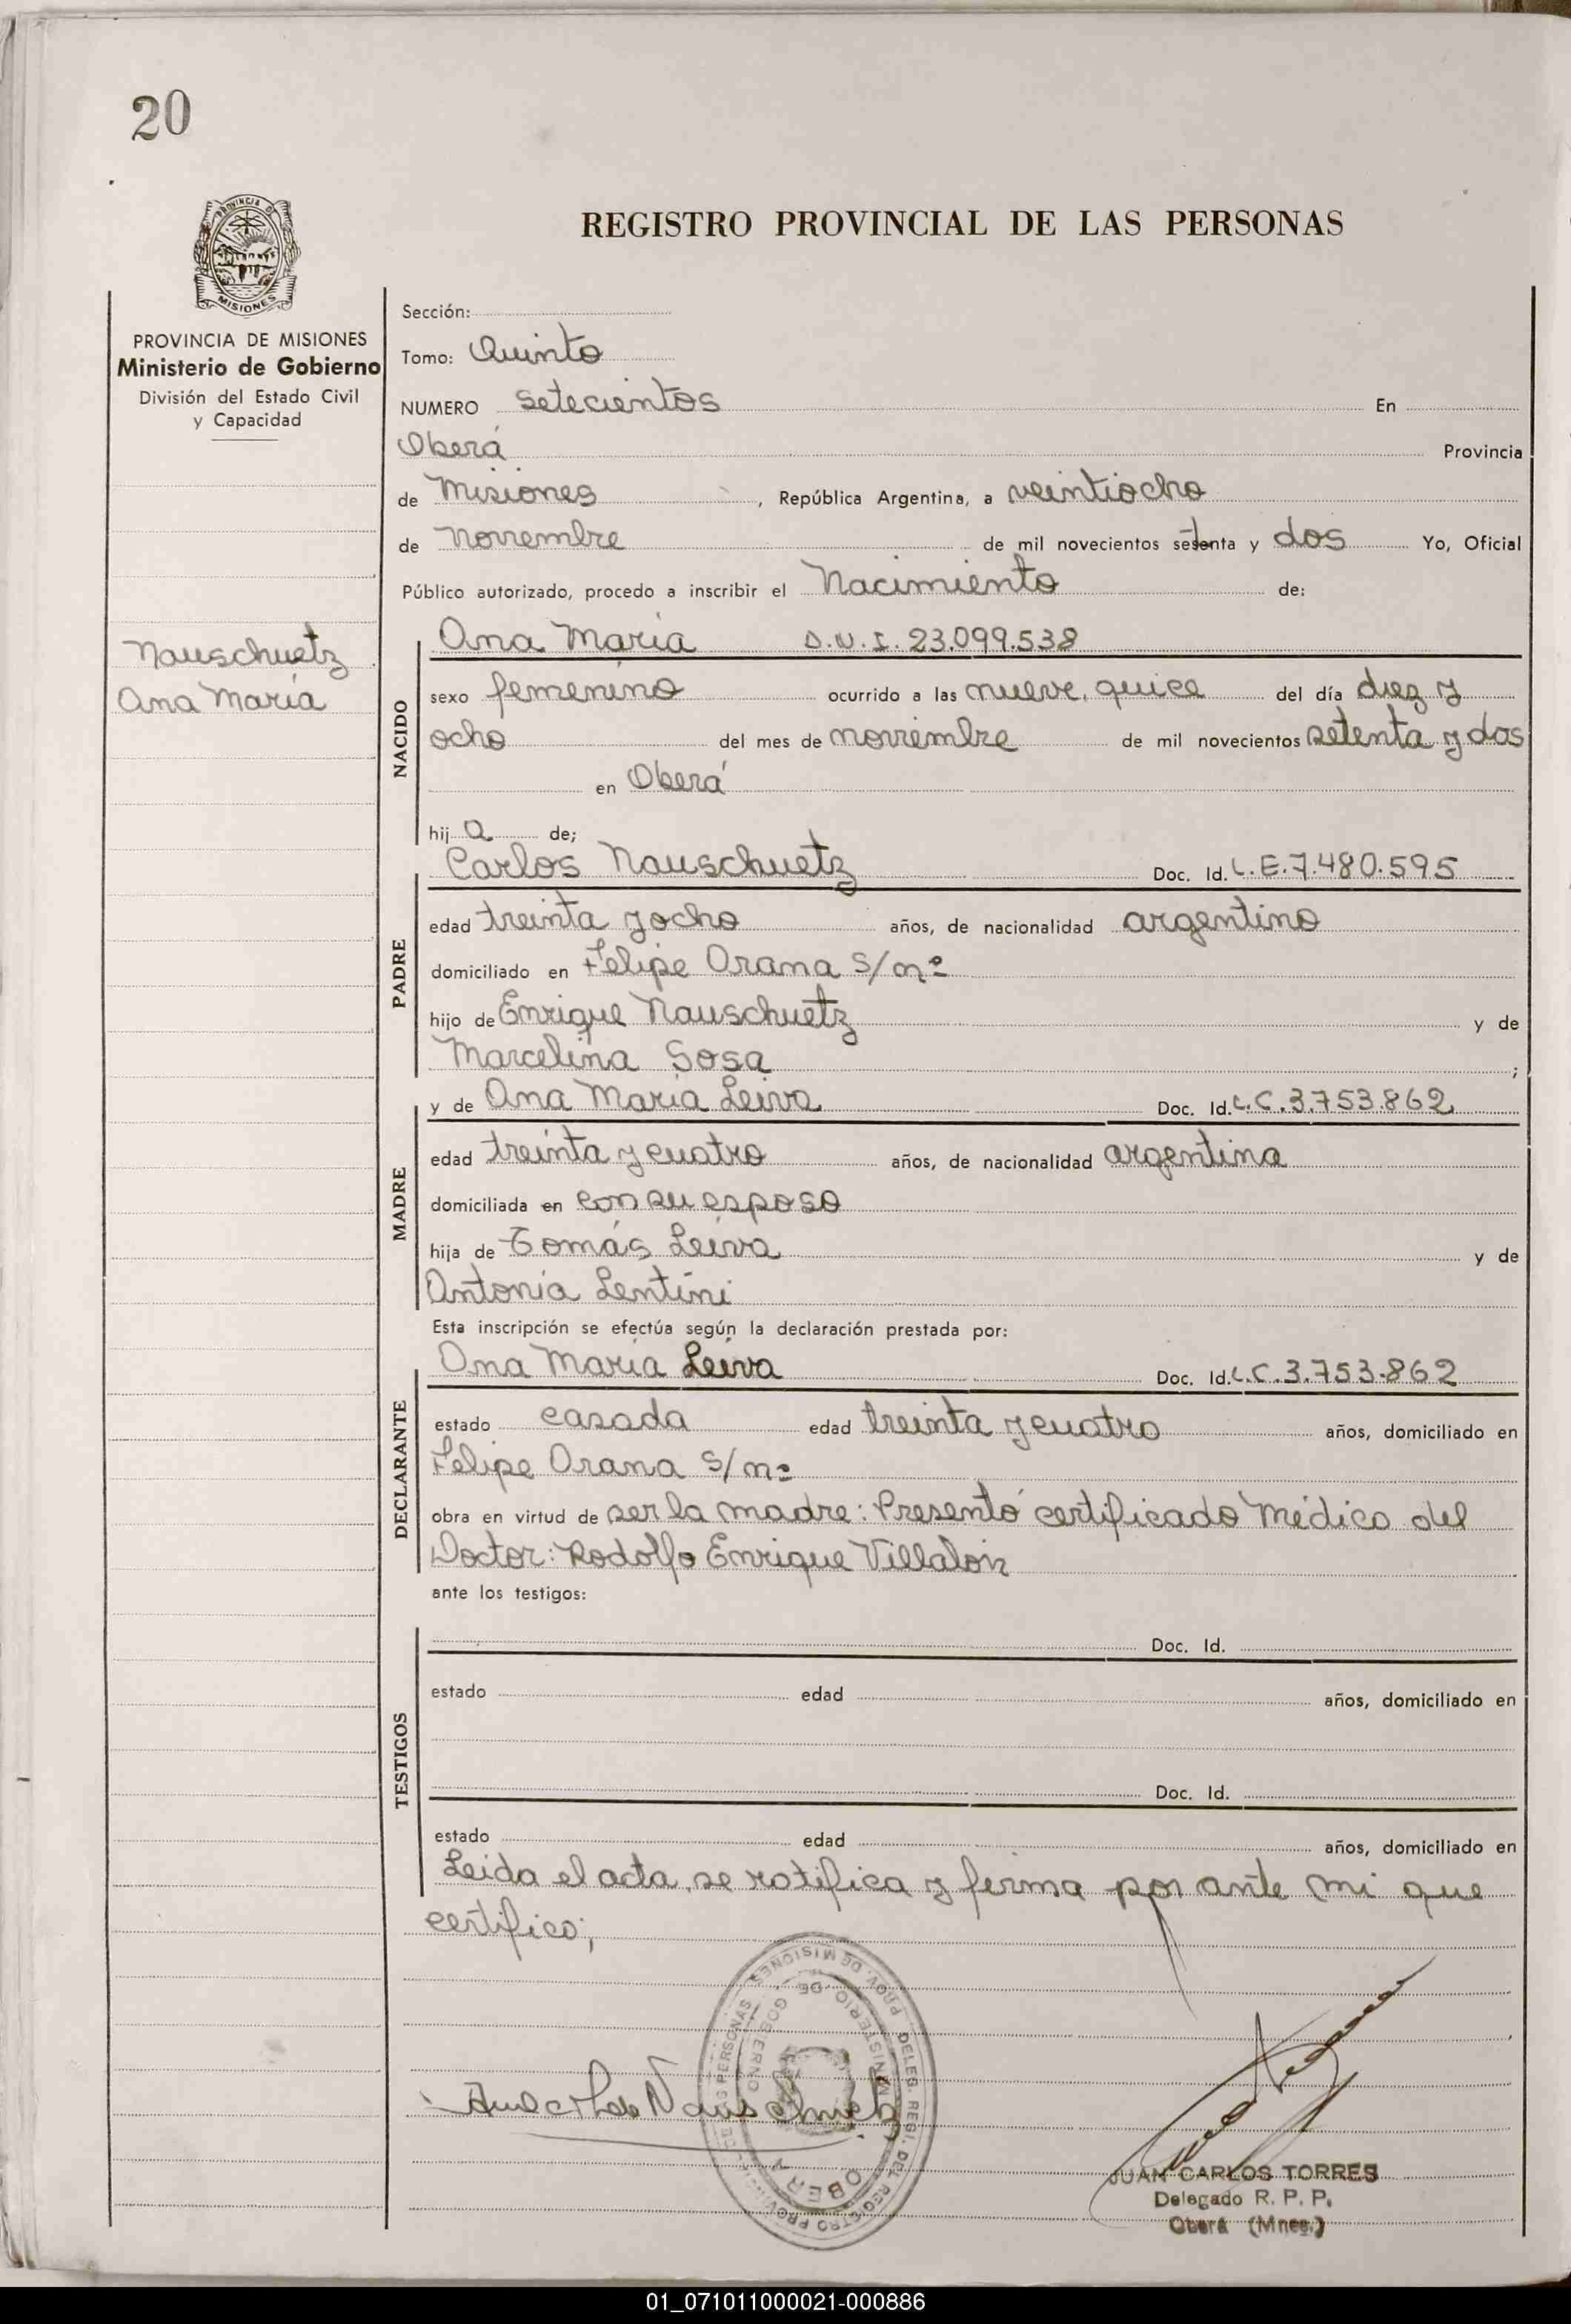 20
PROVINCIA DE
MISIONES
PROVINCIA DE MISIONES
Ministerio de Gobierno
División del Estado Civil
y Capacidad
Nauschuetz
Ana María
REGISTRO PROVINCIAL DE LAS PERSONAS
Sección:
Tomo: Quinto
NUMERO setecientos En
Oberá Provincia
de Misiones, República Argentina, a veintiocho
de Noviembre de mil novecientos setenta y dos Yo, Oficial
Público autorizado, procedo a inscribir el Nacimiento de:
NACIDO
Ana María D.N.I. 23.099.538
sexo femenino ocurrido a las nueve, quice del día diez y
ocho del mes de noviembre de mil novecientos setenta y dos
en Oberá
hija de;
PADRE
Carlos Nauschuetz Doc. Id. L.E.7.480.595
edad treinta y ocho años, de nacionalidad argentino
domiciliado en Felipe Arana s/nº
hijo de Enrique Nauschuetz y de
Marcelina Sosa ;
MADRE
y de Ana María Leiva Doc. Id. L.C.3.753.862
edad treinta y cuatro años, de nacionalidad argentina
domiciliada en con su esposo
hija de Tomás Leiva y de
Antonia Lentini
Esta inscripción se efectúa según la declaración prestada por:
DECLARANTE
Ana María Leiva Doc. Id. L.C.3.753.862
estado casada edad treinta y cuatro años, domiciliado en
Felipe Arana s/nº
obra en virtud de ser la madre: Presentó certificado Médico del
Doctor: Rodolfo Enrique Villalon
ante los testigos:
TESTIGOS
Doc. Id.
estado edad años, domiciliado en
Doc. Id.
estado edad años, domiciliado en
Leida el acta, se ratifica y firma por ante mi que
certifico;
PROV. DE MISIONES DELEG. REGI. DEL REGISTRO PROVINCIAL DE LAS PERSONAS
MINISTERIO DE GOBIERNO
OBERA
JUAN CARLOS TORRES
Delegado R. P. P.
Oberá (Mnes.)
01_071011000021-000886